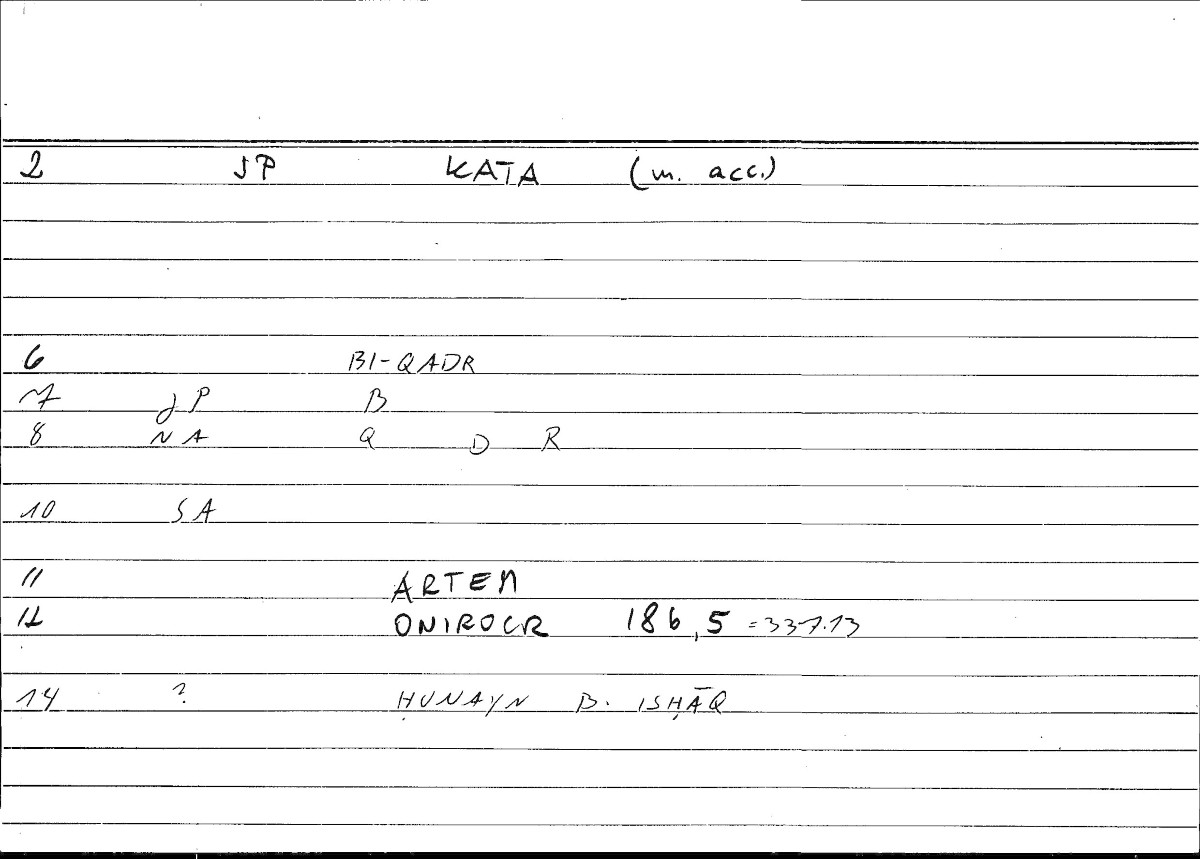 2 JP KATA (m. acc.)
6 BI-QADR
7 JP B
8 NA Q D R
10 SA
11 ARTEM
12 ONIROCR 186,5 =337.13
14 ? ḤUNAYN B. ISḤĀQ